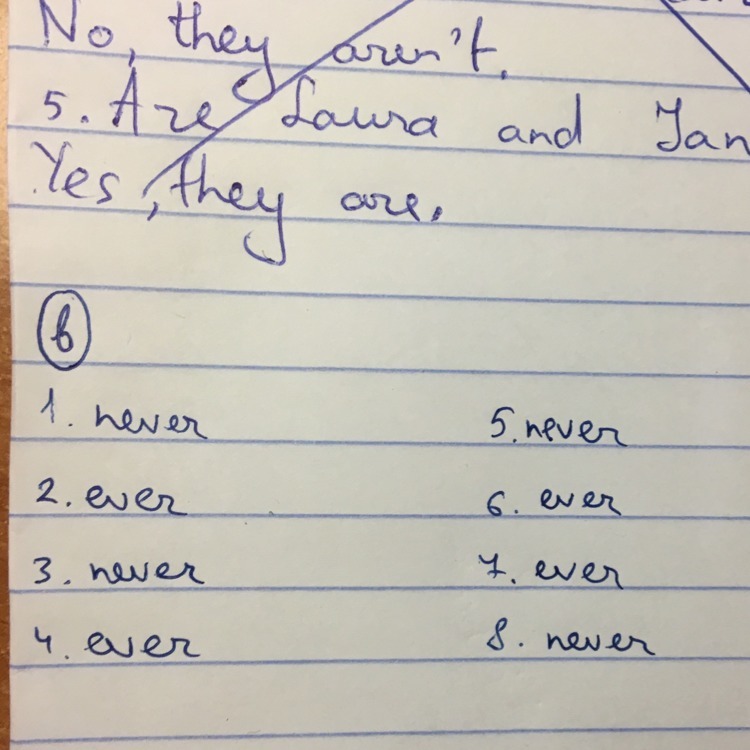 No, they aren't.
5. Are Laura and Jan
Yes, they are.
b
1. never
2. ever
3. never
4. ever
5. never
6. ever
7. ever
8. never